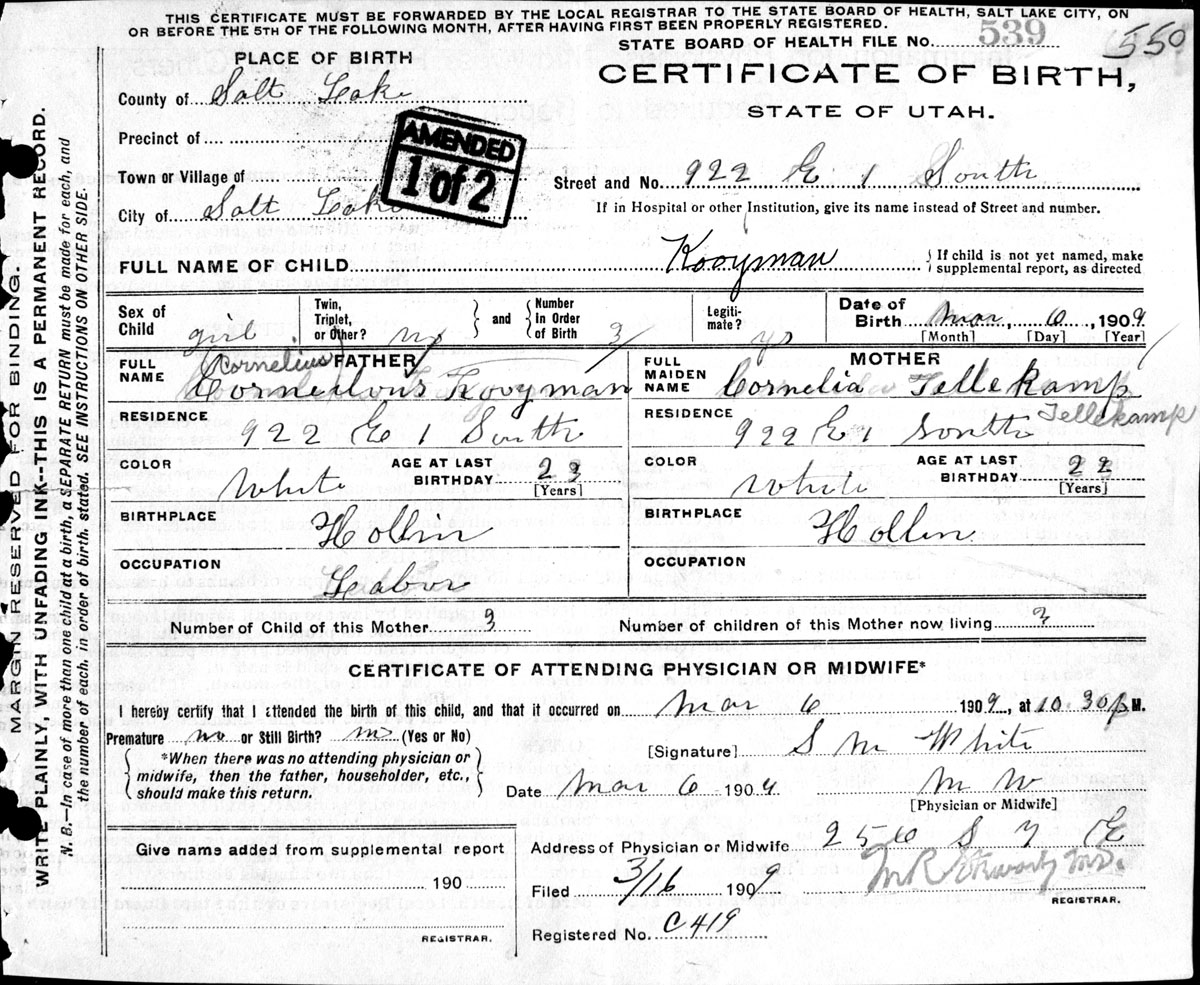 THIS CERTIFICATE MUST BE FORWARDED BY THE LOCAL REGISTRAR TO THE STATE BOARD OF HEALTH, SALT LAKE CITY, ON
OR BEFORE THE 5TH OF THE FOLLOWING MONTH, AFTER HAVING FIRST BEEN PROPERLY REGISTERED.
STATE BOARD OF HEALTH FILE NO. 539
550
PLACE OF BIRTH
CERTIFICATE OF BIRTH,
STATE OF UTAH.
County of Salt Lake
Precinct of
AMENDED
1 of 2
Town or Village of
City of Salt Lake
Street and No. 922 E 1 South
If in Hospital or other Institution, give its name instead of Street and number.
FULL NAME OF CHILD Kooyman
If child is not yet named, make
supplemental report, as directed
Sex of Child girl
Twin, Triplet, or Other? no
and
Number In Order of Birth 3
Legiti-mate? ys
Date of Birth Mar 6, 1909
[Month] [Day] [Year]
FATHER
FULL NAME Corneilous Kooyman
Cornelius
MOTHER
FULL MAIDEN NAME Cornelia Tellekamp
RESIDENCE 922 E 1 South
RESIDENCE 922 E 1 South
Tellekamp
COLOR White
AGE AT LAST BIRTHDAY 23
[Years]
COLOR White
AGE AT LAST BIRTHDAY 22
[Years]
BIRTHPLACE Hollin
BIRTHPLACE Hollin
OCCUPATION Labor
Number of Child of this Mother 3
Number of children of this Mother now living 3
CERTIFICATE OF ATTENDING PHYSICIAN OR MIDWIFE*
I hereby certify that I attended the birth of this child, and that it occurred on Mar 6 1909, at 10.30 P M.
Premature no or Still Birth? no (Yes or No)
*When there was no attending physician or
midwife, then the father, householder, etc.,
should make this return.
[Signature] S M White
Date Mar 6 1909 M W
[Physician or Midwife]
Give name added from supplemental report
190
REGISTRAR.
Address of Physician or Midwife 256 S 7 E
Filed 3/16 1909
REGISTRAR.
Registered No. C419
MARGIN RESERVED FOR BINDING.
WRITE PLAINLY, WITH UNFADING INK--THIS IS A PERMANENT RECORD.
N. B.—In case of more than one child at a birth, a SEPARATE RETURN must be made for each, and
the number of each, in order of birth, stated. SEE INSTRUCTIONS ON OTHER SIDE.